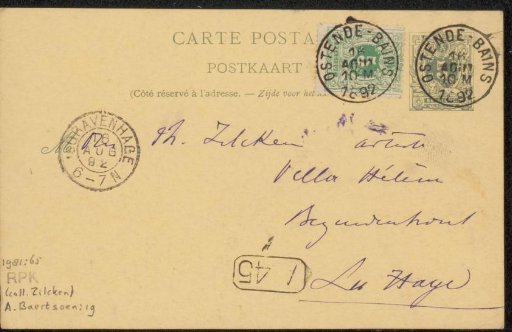 CARTE POSTA
POSTKAART
(Côté réservé à l'adresse. — Zijde voor het
OSTENDE-BAINS
15
AOUT
10 M
1892
OSTENDE-BAINS
15
AOUT
10 M
1892
'SGRAVENHAGE
AUG
92
6-7N
M
Ph. Zilcken artiste
Villa Hélène
Bezuidenhout
La Haye
1 45
1981:65
RPK
(coll. Zilcken)
A. Baertsoen:19